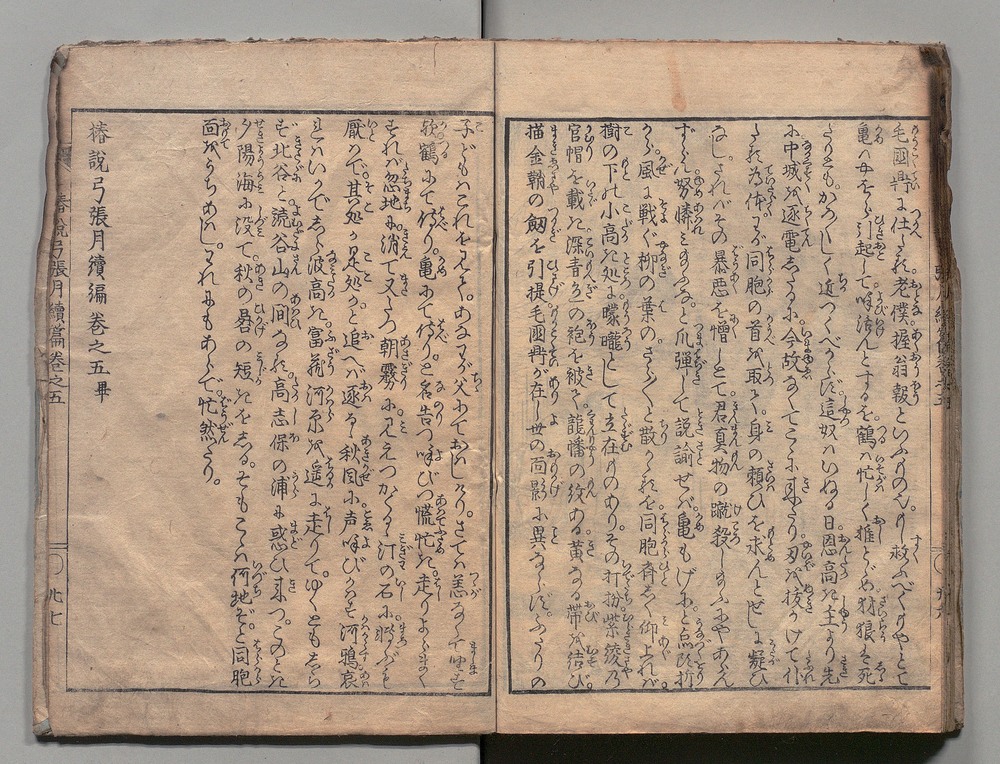 毛國鼎に仕へたる老僕握翁報といふものなり救ふべくもやとて
亀ハ母をうち引起して呼活んとするを鶴ハ忙しく推とゞめ豺狼は死
たりとも。かろ〳〵しく近つくべからず這奴ハいぬる日恩高き主より先
に中城を逐電したるに今故なくてこゝに来たり刃を抜かけて仆
たる為体すは同胞の首を取て身の頼ひを求んとせしに疑ひ
なし。されバその暴悪を憎しとて君真物の蹴殺し給ふにやあらん
ずらん努愫としたまふな。と爪弾して説諭せバ亀もげにと点頭折
から風に戦ぐ柳の葉のさら〳〵と散かゝるを同胞斉しく仰上れバ
樹の下の小高き処に曚曨として立在ものあり。その打扮紫綾乃
官帽を載き深青色の袍を被て龍幡の紋ある黄なる帯を結び。
描金鞘の劔を引提毛國鼎が在し世の面影に異ならず。ふたりの
子どもハこれを見て。あなわが父にておハしけり。さてハ恙なくて
歟鶴にて侍り。亀にて侍りと名告つ呼びつ慌忙き走りよらまく
すれバ忽地に消て又たつ朝霧に見えつかくるゝ汀の石に
厭かで其処か是処かと追へハ逐るゝ秋風に声呼びかはす河鴉哀
れハいかでしら波高き富蔵河原を遥に走りてゆくともしら
ず北谷と読谷山の間なる高志保の浦に惑ひ来つ。このとき
夕陽海に没て秋の晷の短きをしる。そもこゝハ何地ぞと同胞
面をうちあはし。われにもあらで。忙然たり。
椿説弓張月續編巻之五畢
椿説弓張月續篇巻之五
廿七